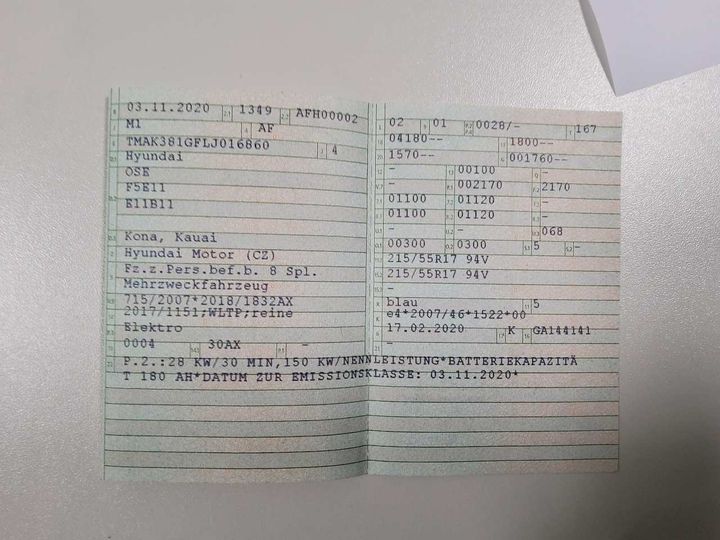 03.11.2020 1349 AFH00002
M1 AF
TMAK381GFLJ016860 4
Hyundai
OSE
F5E11
E11B11
Kona, Kauai
Hyundai Motor (CZ)
Fz.z.Pers.bef.b. 8 Spl.
Mehrzweckfahrzeug
715/2007*2018/1832AX
2017/1151;WLTP;reine
Elektro
0004 30AX -
02 01 0028/- 167
04180-- 1800--
1570-- 001760--
- 00100 -
- 002170 2170
01100 01120 -
01100 01120 -
- - 068
00300 0300 5 -
215/55R17 94V
215/55R17 94V
-
blau 5
e4*2007/46*1522*00
17.02.2020 K GA144141
-
P.2.:28 KW/30 MIN,150 KW/NENNLEISTUNG*BATTERIEKAPAZITÄ
T 180 AH*DATUM ZUR EMISSIONSKLASSE: 03.11.2020*